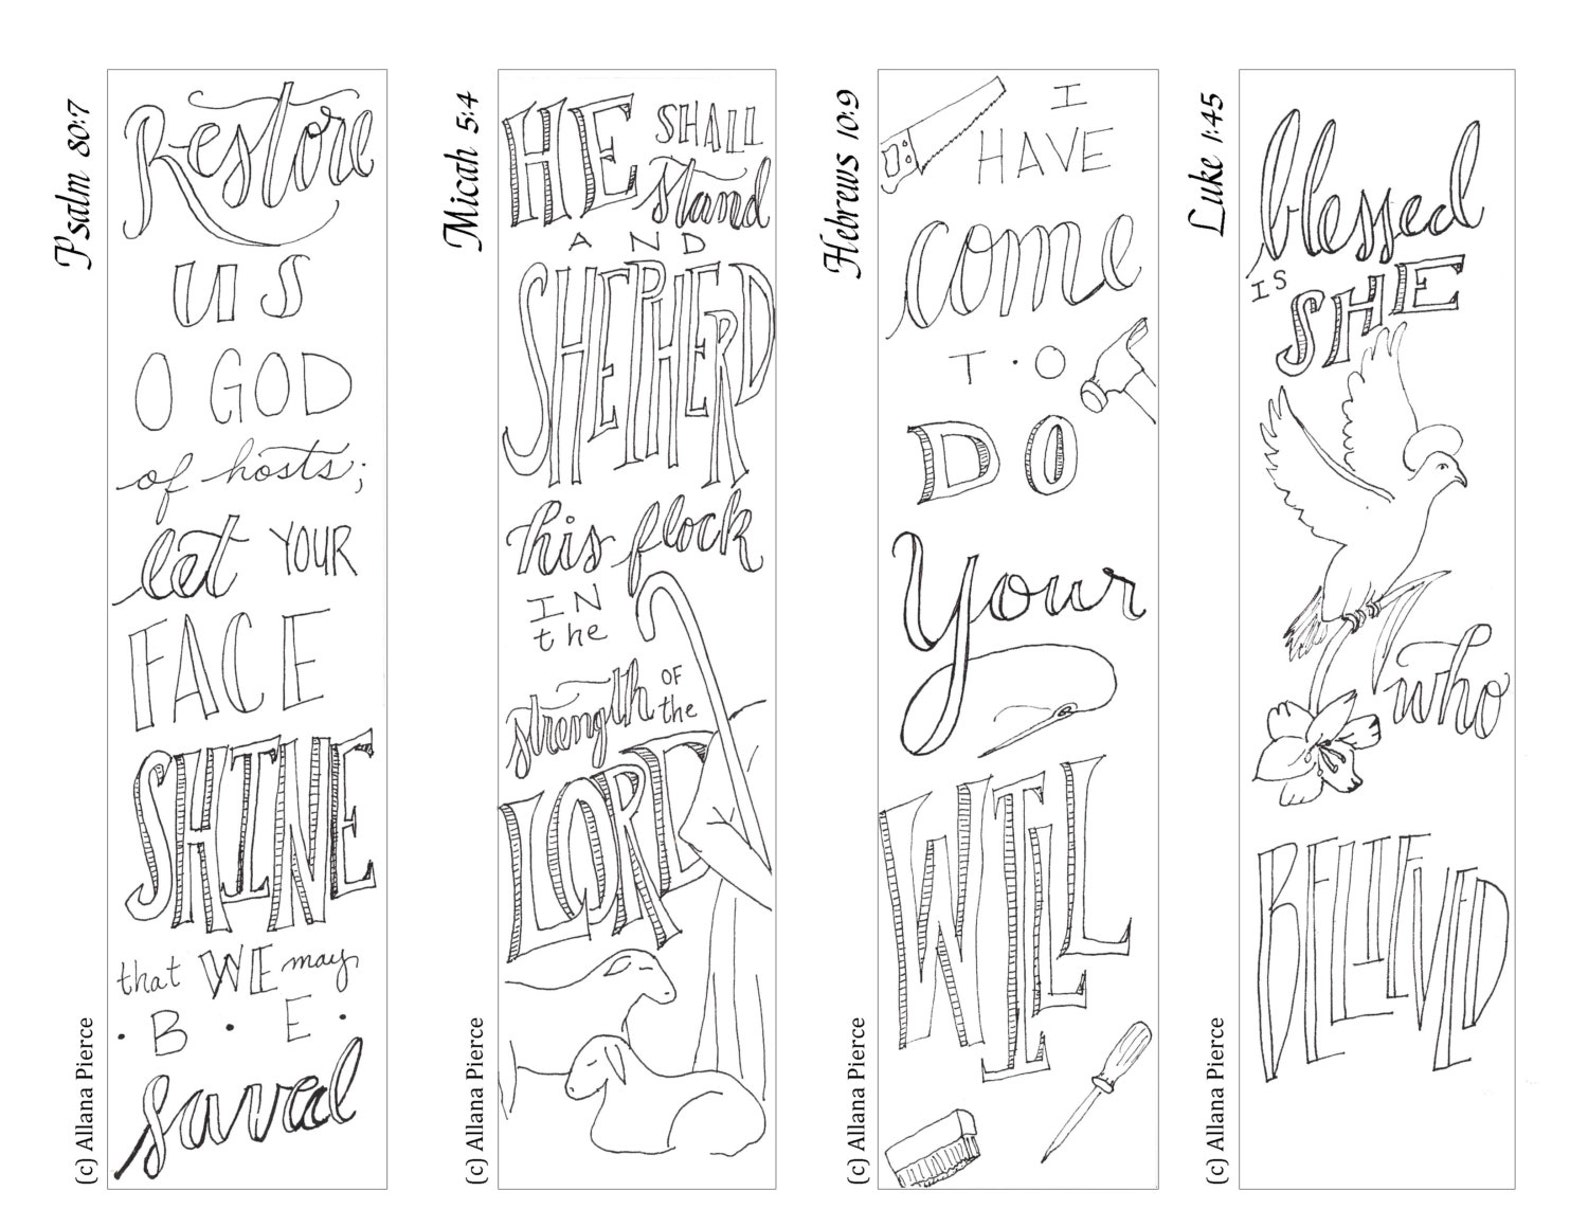 Psalm 80:7
Restore
US
O GOD
of hosts;
let YOUR
FACE
SHINE
that WE may
· B · E ·
saved
(c) Allana Pierce
Micah 5:4
HE SHALL
stand
AND
SHEPHERD
his flock
IN
the
strength OF
the
LORD
(c) Allana Pierce
Hebrews 10:9
I
HAVE
come
T·O
DO
Your
WILL
(c) Allana Pierce
Luke 1:45
blessed
IS SHE
who
BELIEVED
(c) Allana Pierce